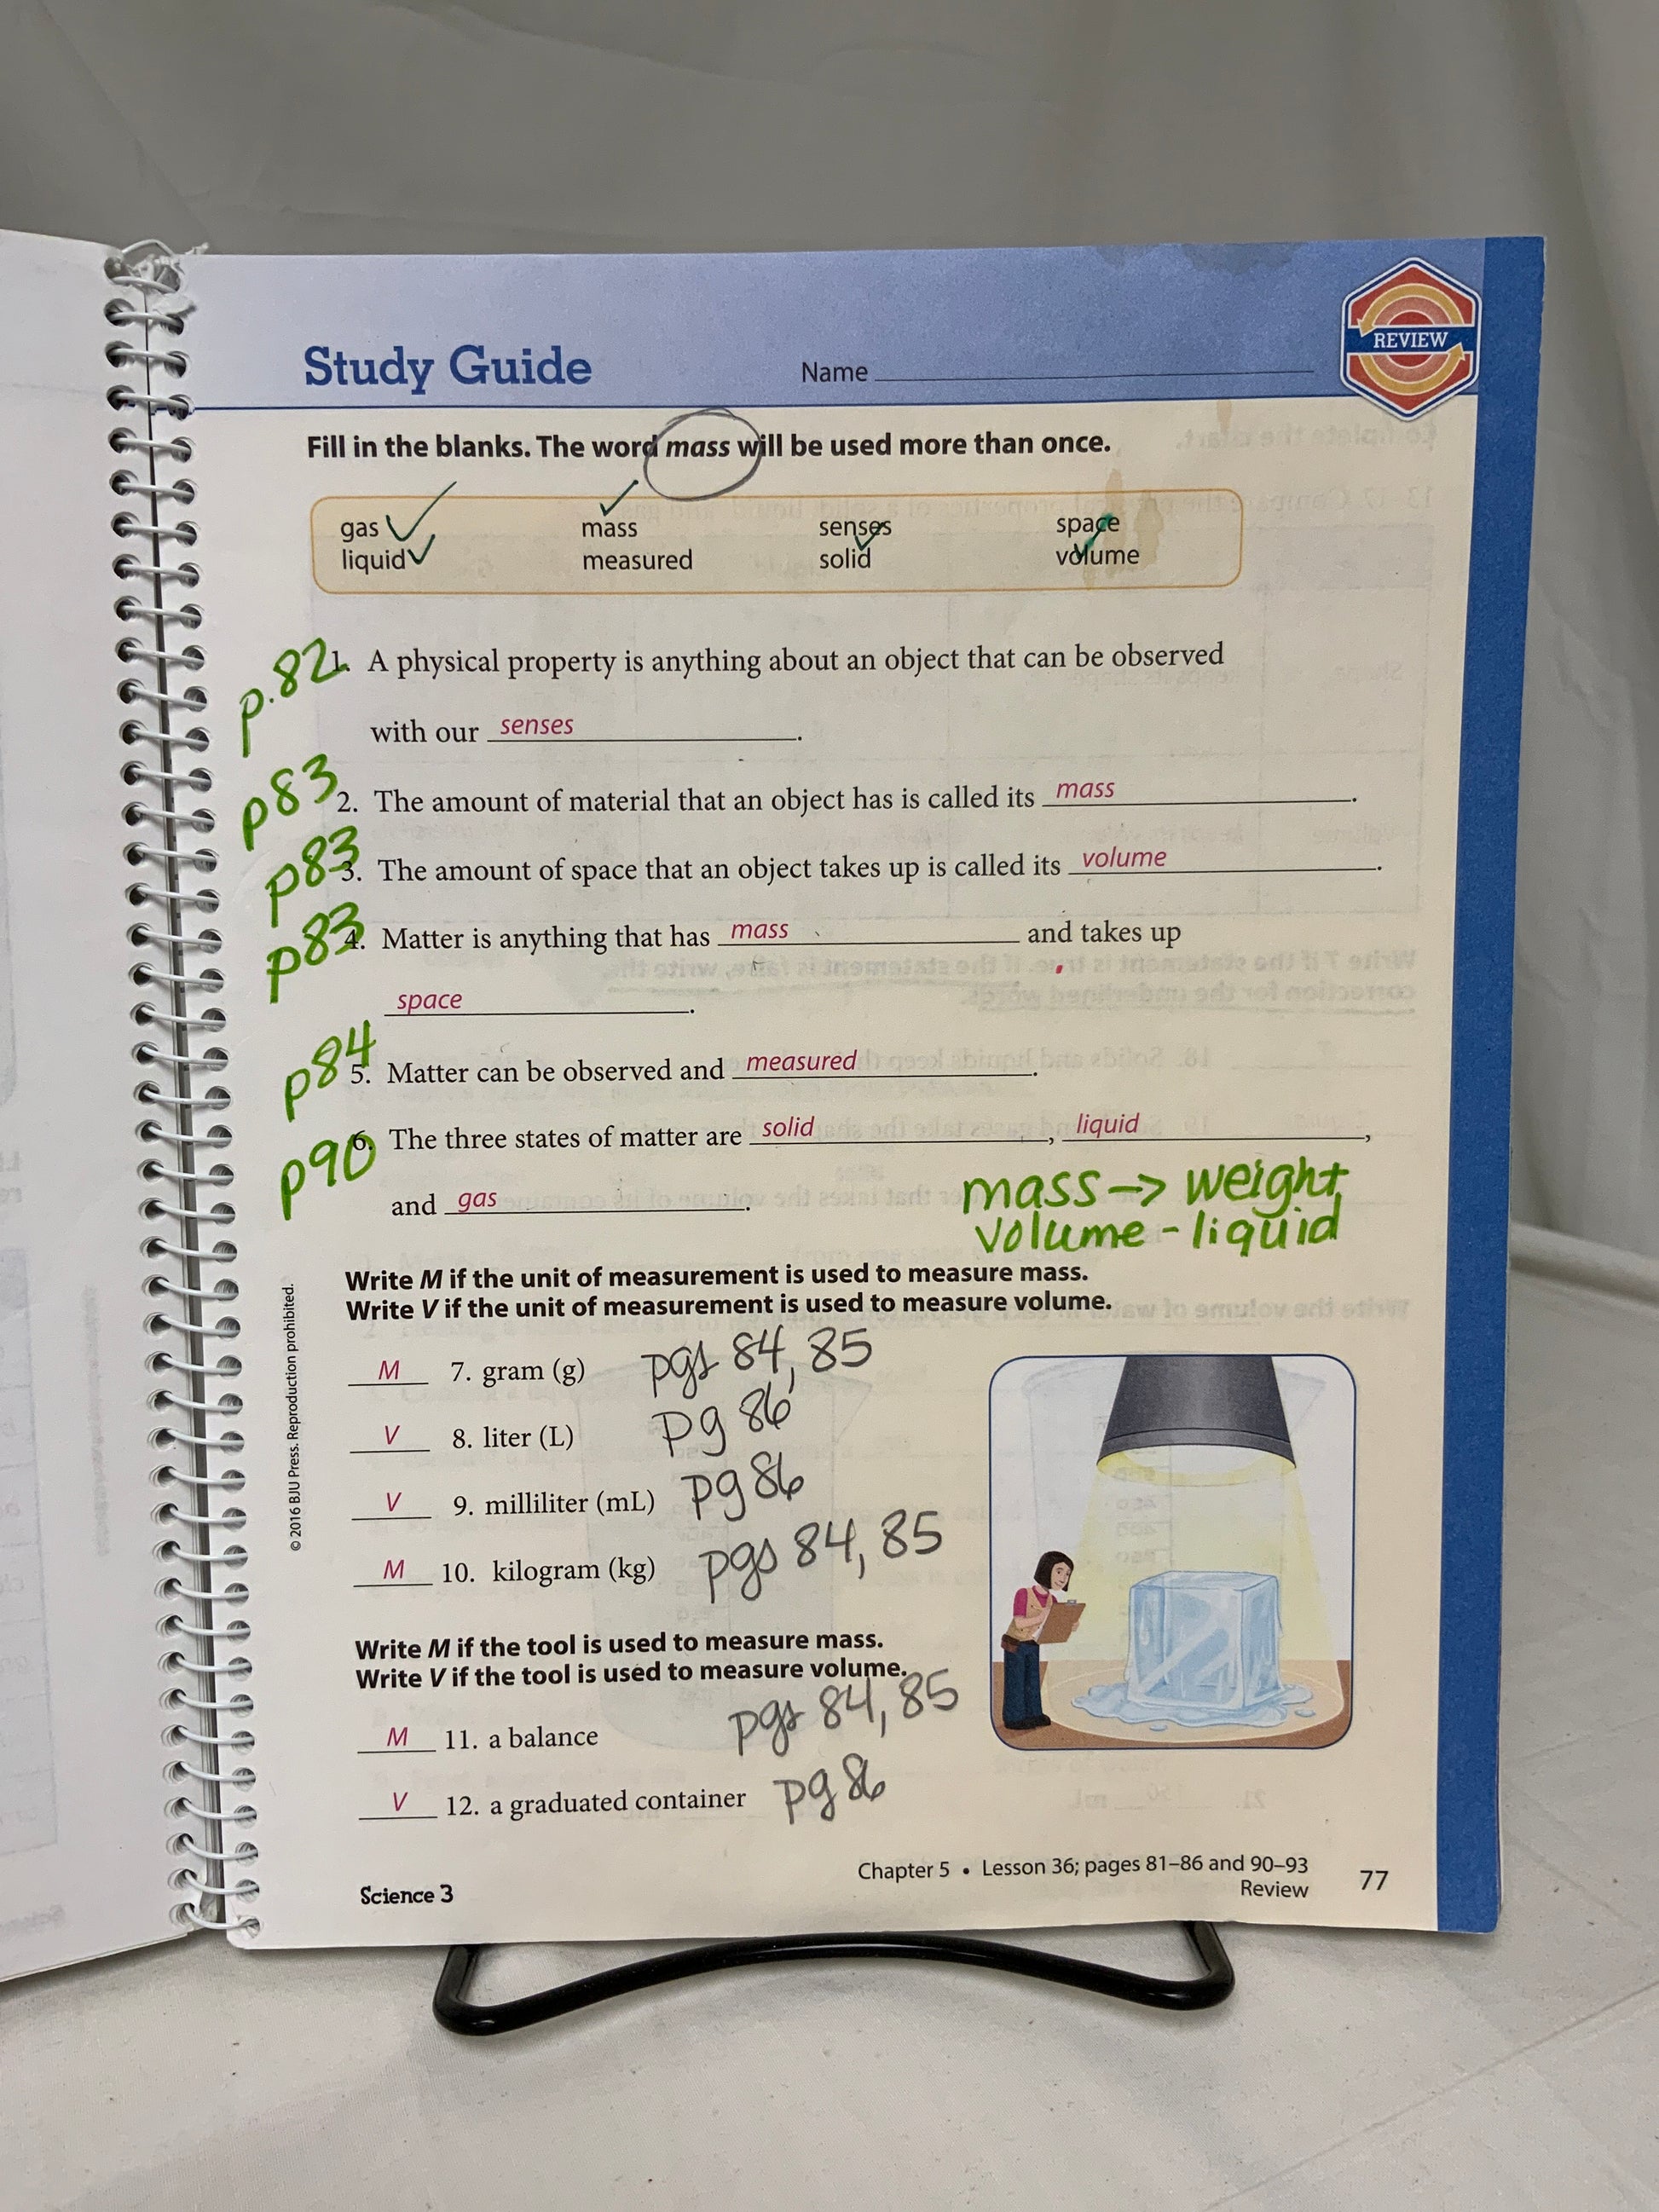 REVIEW
Study Guide
Name
Fill in the blanks. The word mass will be used more than once.
gas mass senses space
liquid measured solid volume
p.82 1. A physical property is anything about an object that can be observed
with our senses.
p83 2. The amount of material that an object has is called its mass.
p83 3. The amount of space that an object takes up is called its volume.
p83 4. Matter is anything that has mass and takes up
space.
p84 5. Matter can be observed and measured.
p90 6. The three states of matter are solid, liquid,
and gas.
mass → weight
volume - liquid
Write M if the unit of measurement is used to measure mass.
Write V if the unit of measurement is used to measure volume.
M 7. gram (g) pgs 84, 85
V 8. liter (L) pg 86
V 9. milliliter (mL) pg 86
M 10. kilogram (kg) pgs 84, 85
Write M if the tool is used to measure mass.
Write V if the tool is used to measure volume.
M 11. a balance pgs 84, 85
V 12. a graduated container pg 86
© 2016 BJU Press. Reproduction prohibited.
Science 3
Chapter 5 • Lesson 36; pages 81–86 and 90–93
Review
77